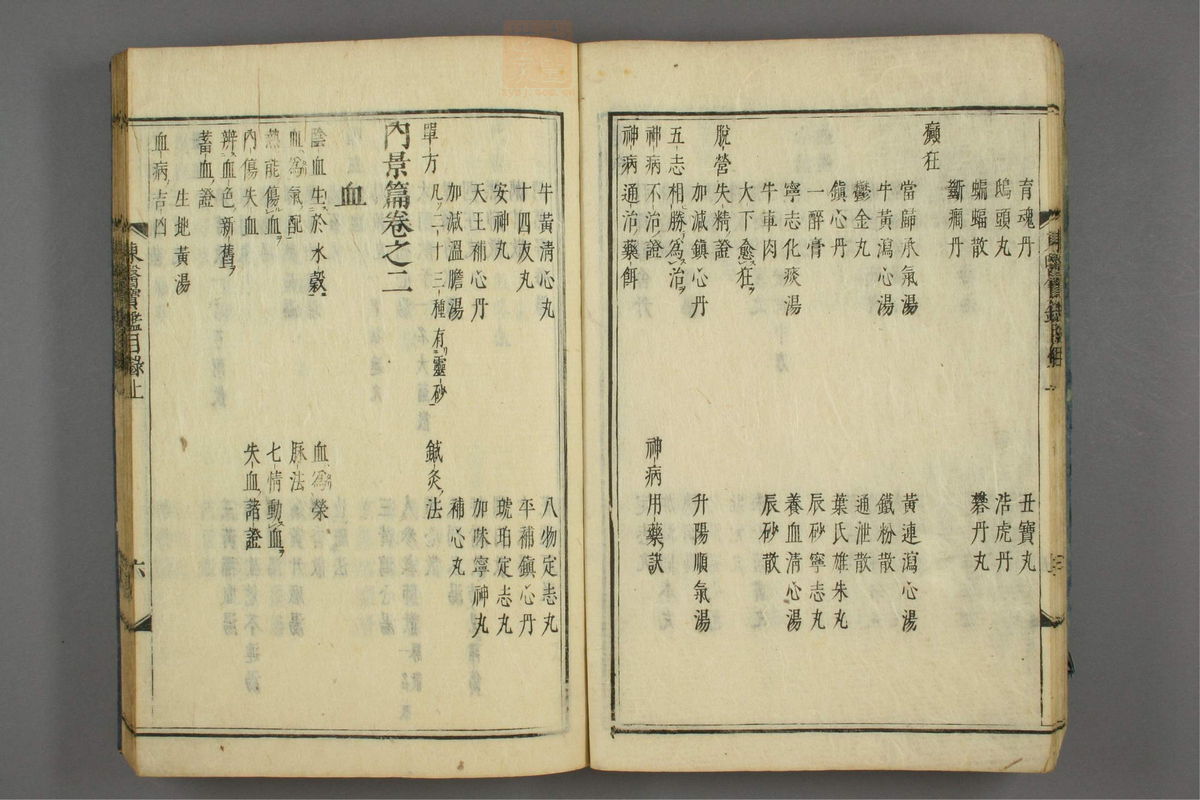 育魂丹
丑寶丸
鴟頭丸
浩虎丹
蝙蝠散
礬丹丸
斷癎丹
癲狂
當歸承氣湯
黃連瀉心湯
牛黃瀉心湯
鐵粉散
鬱金丸
通泄散
鎭心丹
葉氏雄朱丸
一醉膏
辰砂寧志丸
寧志化痰湯
養血清心湯
牛車肉
辰砂散
大下愈狂
脫營失精證
加減鎭心丹
升陽順氣湯
五志相勝爲治
神病不治證
神病用藥訣
神病通治藥餌
牛黃淸心丸
八物定志丸
十四友丸
平補鎭心丹
安神丸
琥珀定志丸
天王補心丹
加味寧神丸
加減溫膽湯
補心丸
單方凡二十三種有靈砂
鍼灸法
內景篇卷之二
血
陰血生於水穀
血爲榮
血爲氣配
脈法
熱能傷血
七情動血
內傷失血
失血諸證
辨血色新舊
蓄血證
生地黃湯
血病吉凶
東醫寶鑑目錄上
六